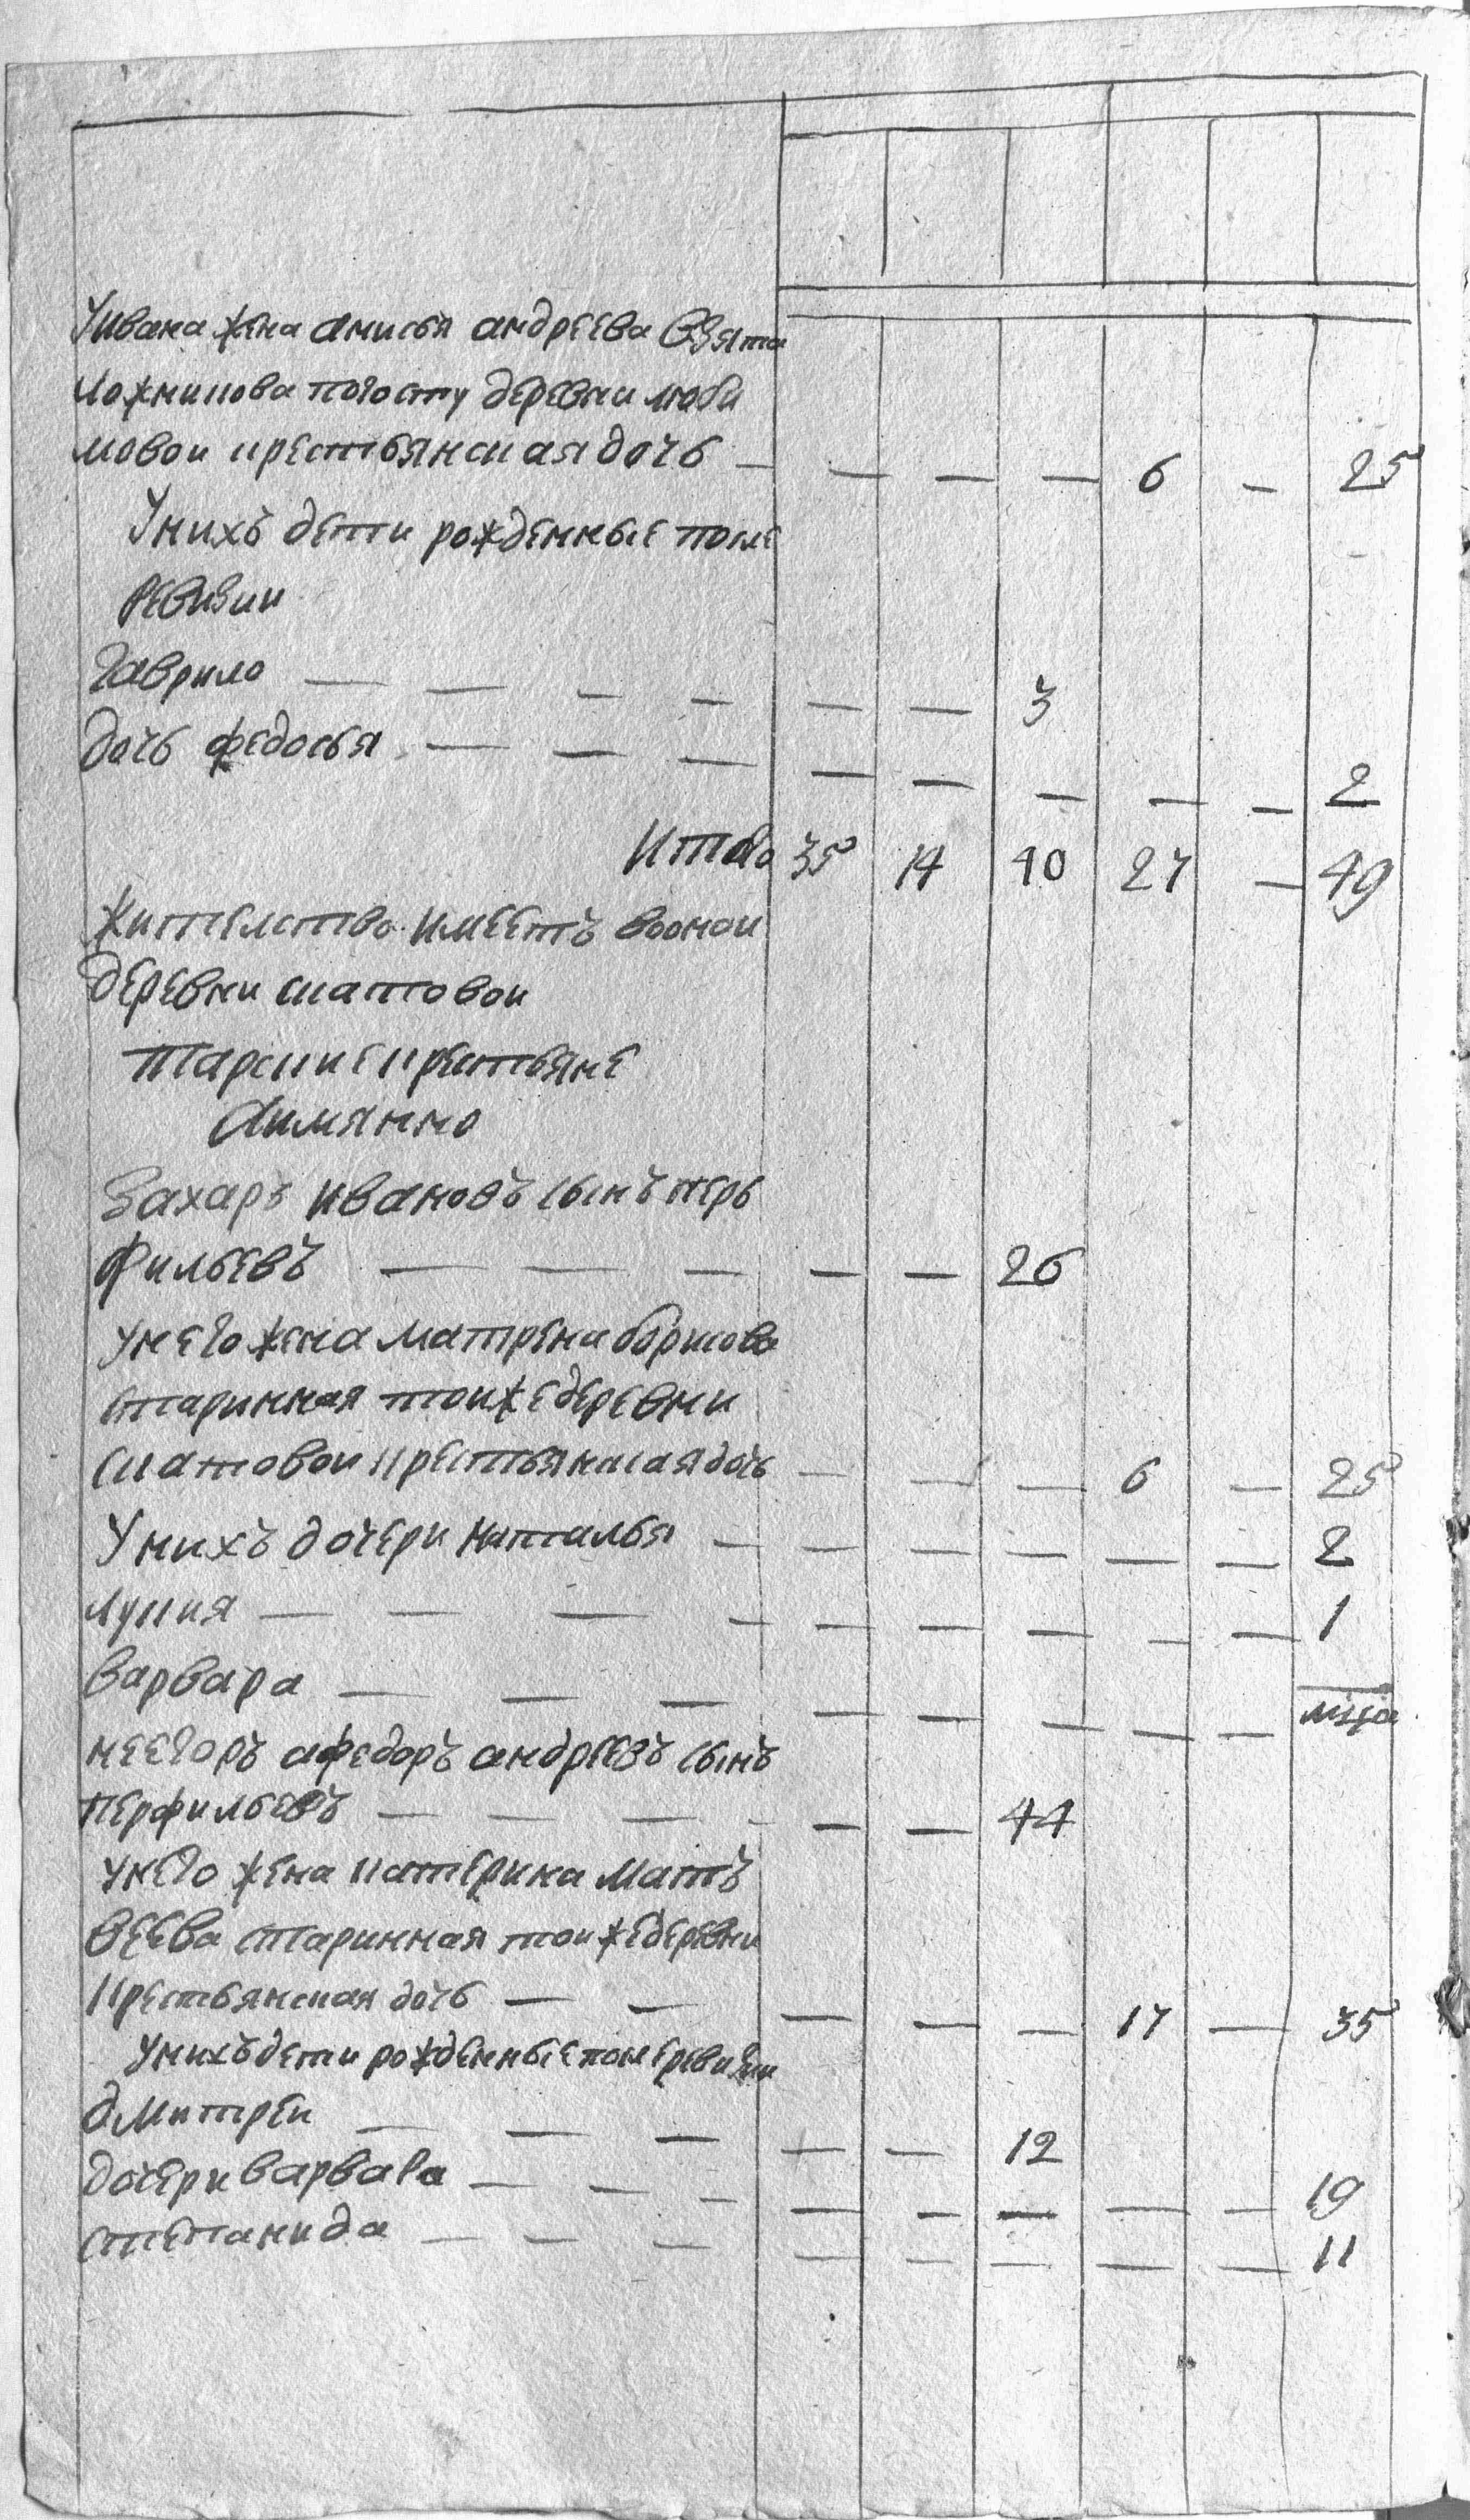 Уивана жена анисья андреева взята
ложнинова погосту деревни люби
мовои крестьянская дочь — — — — 6 — 25
Унихъ дети рожденные после
ревизии
гаврило — — — — — — 3
дочь федосья — — — — — — — — 2
Итого 35 14 40 27 — 49
жителство имеетъ воонои
деревни скатовои
тарские крестьяне
Аимянно
Захаръ Ивановъ сынъ перь
фильевъ — — — — — 26
унего жена матрена борисова
старинная тоижедеревни
скатовои крестьянская дочь — — — 6 — 25
Унихъ дочери наталья — — — — — — 2
лукия — — — — — — — — — 1
варвара — — — — — — — —
неегоръ афедоръ андреевъ сынъ
перфильевъ — — — — — — 44
унего жена катерина матъ
веева старинная тоижедеревни
крестьянская дочь — — — — — 17 — 35
унихъ дети рожденные после ревизии
дмитреи — — — — — 12
дочери варвара — — — — — — — — 19
степанида — — — — — — — — 11